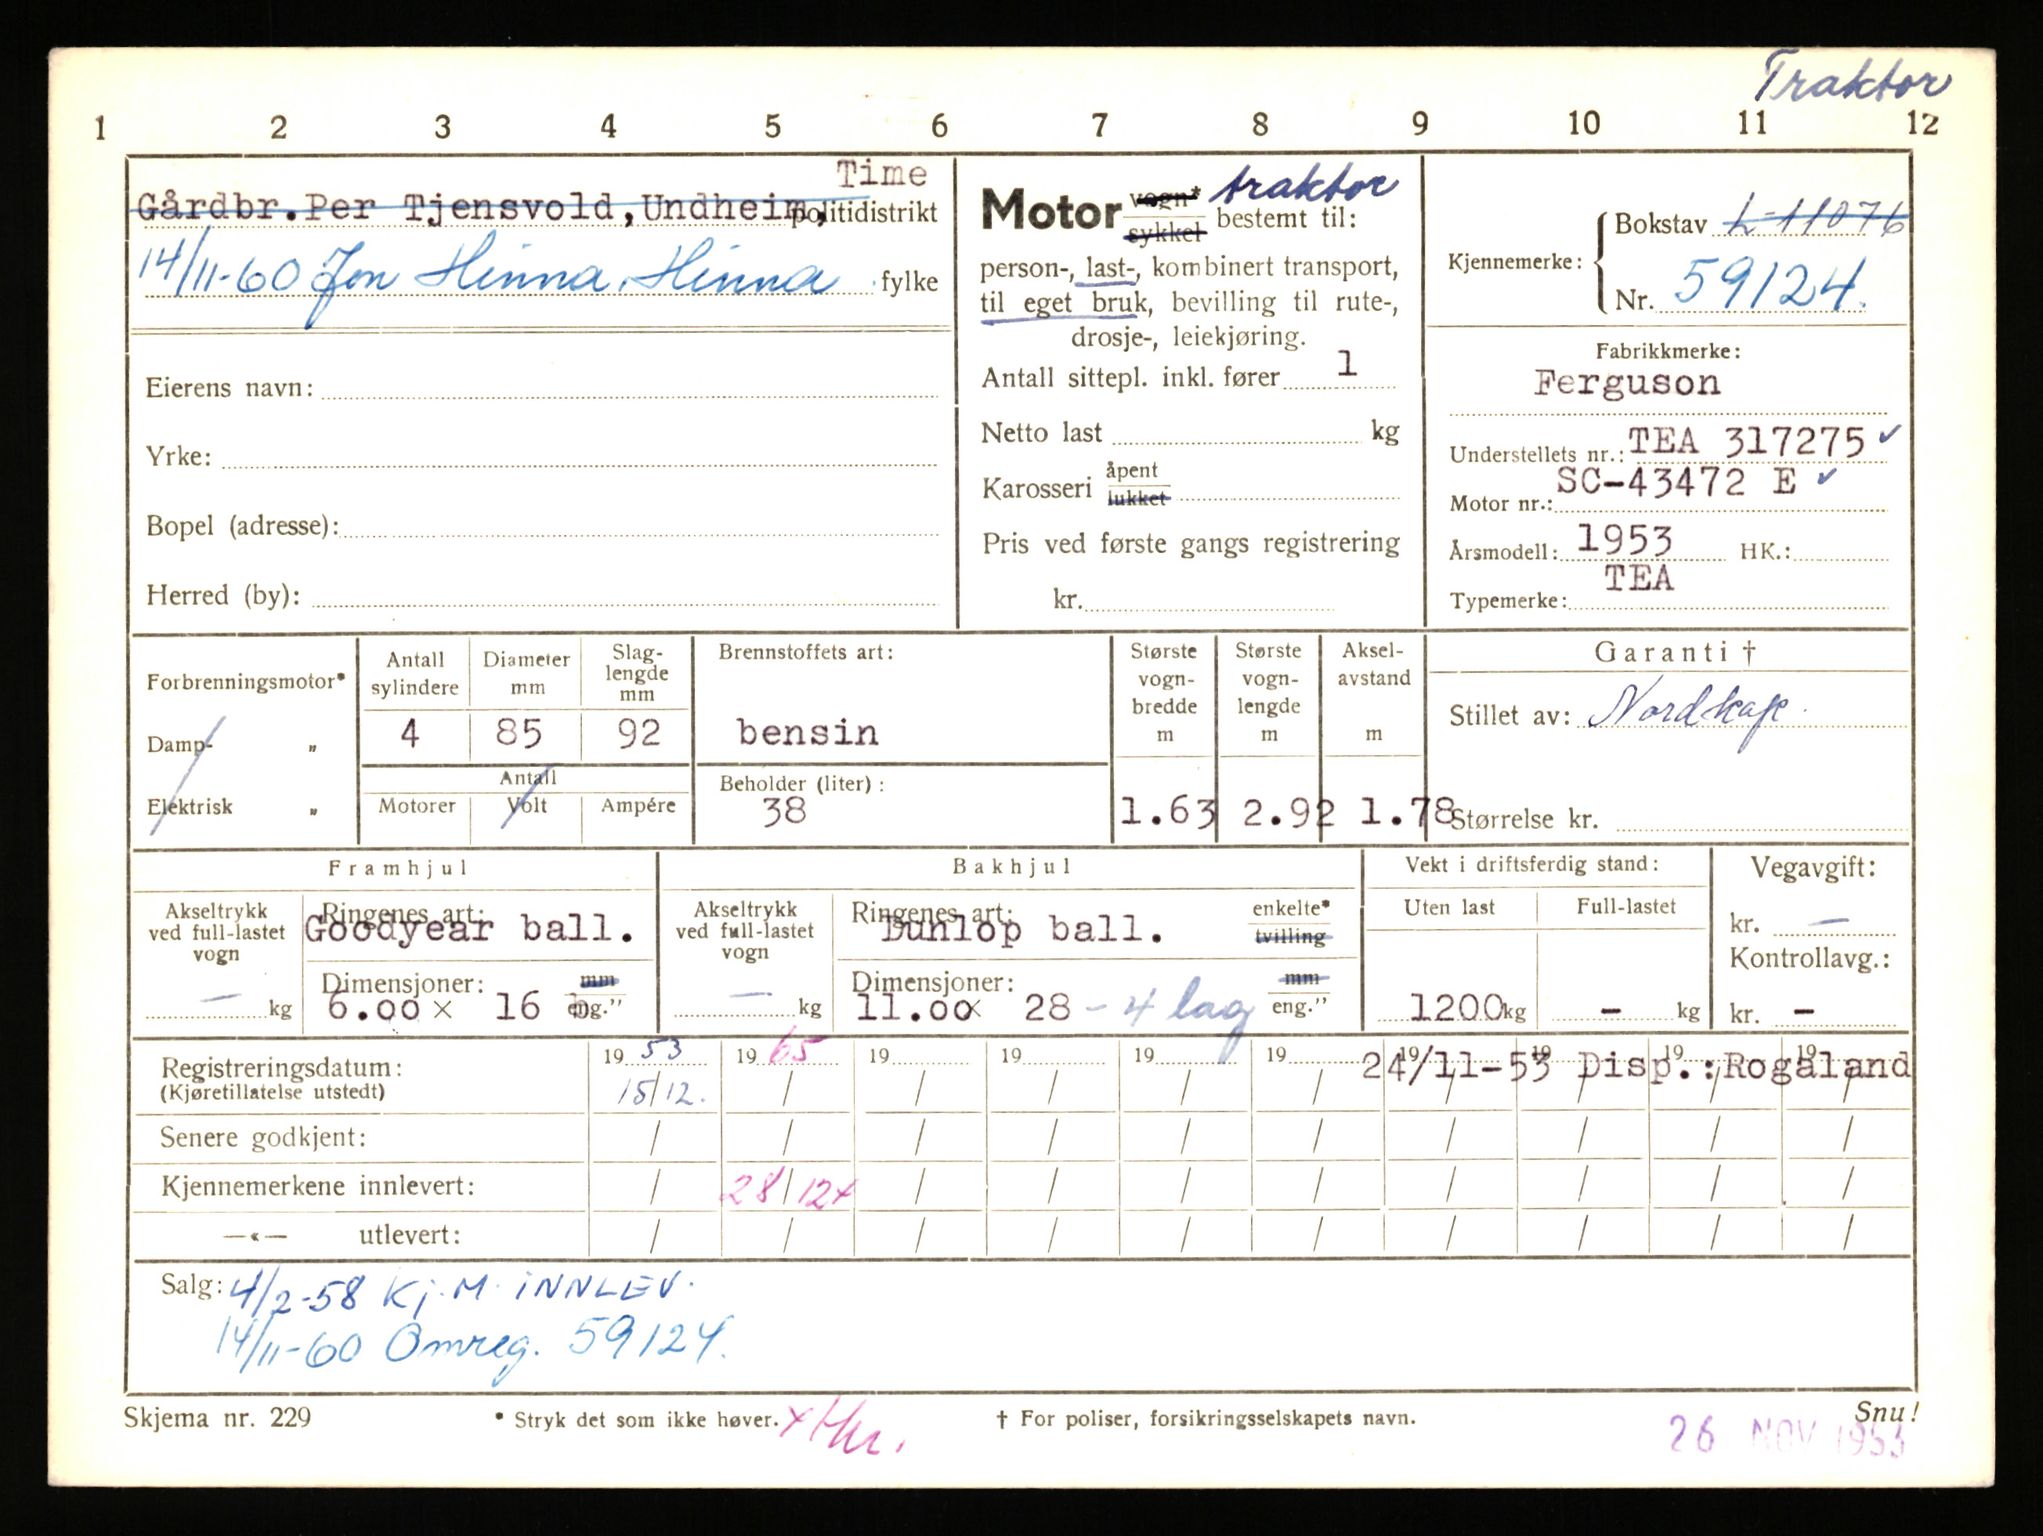 Traktor
1 2 3 4 5 6 7 8 9 10 11 12
Time
Gårdbr. Per Tjensvold, Undheim, politidistrikt
14/11-60 Jon Hinna, Hinna fylke
Eierens navn:
Yrke:
Bopel (adresse):
Herred (by):
Motor vogn* sykkel traktor bestemt til:
person-, last-, kombinert transport,
til eget bruk, bevilling til rute-,
drosje-, leiekjøring.
Antall sittepl. inkl. fører 1
Netto last kg
Karosseri åpent lukket
Pris ved første gangs registrering
kr.
Kjennemerke: Bokstav L-11076
Nr. 59124.
Fabrikkmerke:
Ferguson
Understellets nr.: TEA 317275 ✓
Motor nr.: SC-43472 E ✓
Årsmodell: 1953 HK.:
Typemerke: TEA
Forbrenningsmotor*
Damp- "
Elektrisk "
Antall sylindere 4
Diameter mm 85
Slag-lengde mm 92
Antall
Motorer Volt Ampére
Brennstoffets art:
bensin
Beholder (liter):
38
Største vogn-bredde m 1.63
Største vogn-lengde m 2.92
Aksel-avstand m 1.78
Garanti †
Stillet av: Nordkap.
Størrelse kr.
Framhjul
Akseltrykk ved full-lastet vogn — kg
Ringenes art: Goodyear ball.
Dimensjoner: 6.00 × 16 mm eng."
Bakhjul
Akseltrykk ved full-lastet vogn — kg
Ringenes art: Dunlop ball. enkelte* tvilling
Dimensjoner: 11.00 × 28 - 4 lag mm eng."
Vekt i driftsferdig stand:
Uten last Full-lastet
1200 kg - kg
Vegavgift:
kr. —
Kontrollavg.:
kr. -
Registreringsdatum: 1953 1965 19 19 19 19 19 19 19 19
(Kjøretillatelse utstedt) 15/12. / / / / / / / / /
24/11-53 Disp.: Rogaland
Senere godkjent: / / / / / / / / / /
Kjennemerkene innlevert: / 28/12 x / / / / / / / /
—«— utlevert: / / / / / / / / / /
Salg: 4/2-58 Kj.M. INNLEV.
14/11-60 Omreg. 59124.
Skjema nr. 229
* Stryk det som ikke høver.
† For poliser, forsikringsselskapets navn.
Snu!
26 NOV 1953